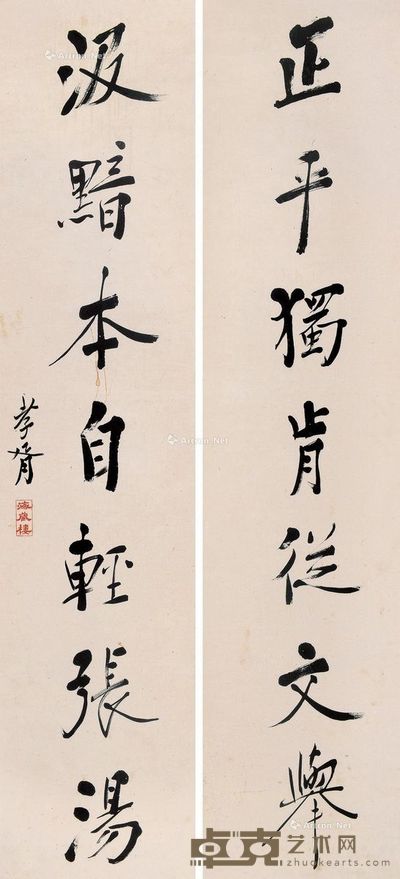 正平獨肯從文舉
汲黯本自輕張湯
孝胥
海藏樓
Artron.Net
Artron.Net
Artron.Net
Artron.Net
卓克艺术网
zhuokearts.com